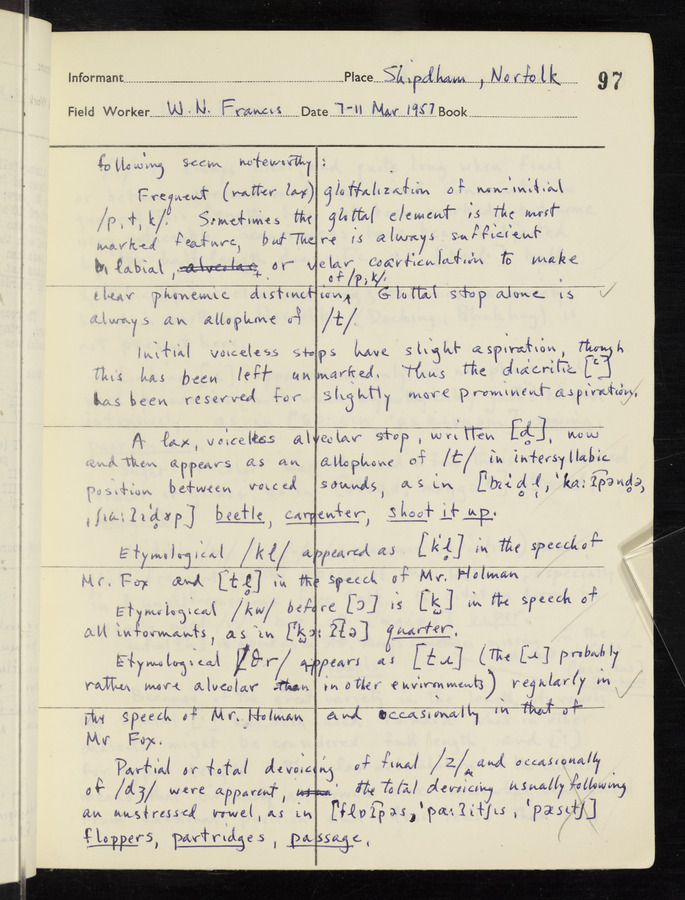 Informant Place Shipdham, Norfolk 97
Field Worker W. N. Francis Date 7-11 Mar 1957 Book
following seem noteworthy:
Frequent (rather lax) glottalization of non-initial
/p, t, k/. Sometimes the glottal element is the most
marked feature, but there is always sufficient
labial, alveolar, or velar coarticulation to make
of /p, k/.
clear phonemic distinction. Glottal stop alone is
always an allophone of /t/
Initial voiceless stops have slight aspiration, though
this has been left unmarked. Thus the diacritic [ʻ]
has been reserved for slightly more prominent aspiration.
A lax, voiceless alveolar stop, written [d̥], now
and then appears as an allophone of /t/ in intersyllabic
position between voiced sounds, as in
beetle, carpenter, shoot it up.
Etymological /kl/ appeared as in the speech of
Mr. Fox and in the speech of Mr. Holman
Etymological /kw/ before [ɔ] is in the speech of
all informants, as in quarter.
Etymological /θr/ appears as [tɹ] (the [ɹ] probably
rather more alveolar than in other environments) regularly in
the speech of Mr. Holman and occasionally in that of
Mr Fox.
Partial or total devoicing of final /z/, and occasionally
of /dʒ/ were apparent, the total devoicing usually following
an unstressed vowel, as in
floppers, partridges, passage.